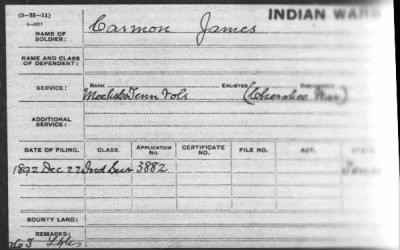 (3-III-11)
INDIAN WARS
NAME OF SOLDIER: Carmon James
NAME AND CLASS OF DEPENDENT:
SERVICE: RANK ENLISTED
Tenn Vols (Cherokee War)
ADDITIONAL SERVICE:
DATE OF FILING. CLASS. APPLICATION NO. CERTIFICATE NO. FILE NO. ACT.
1892 Dec 22 Ind Sur 3882
BOUNTY LAND:
REMARKS: